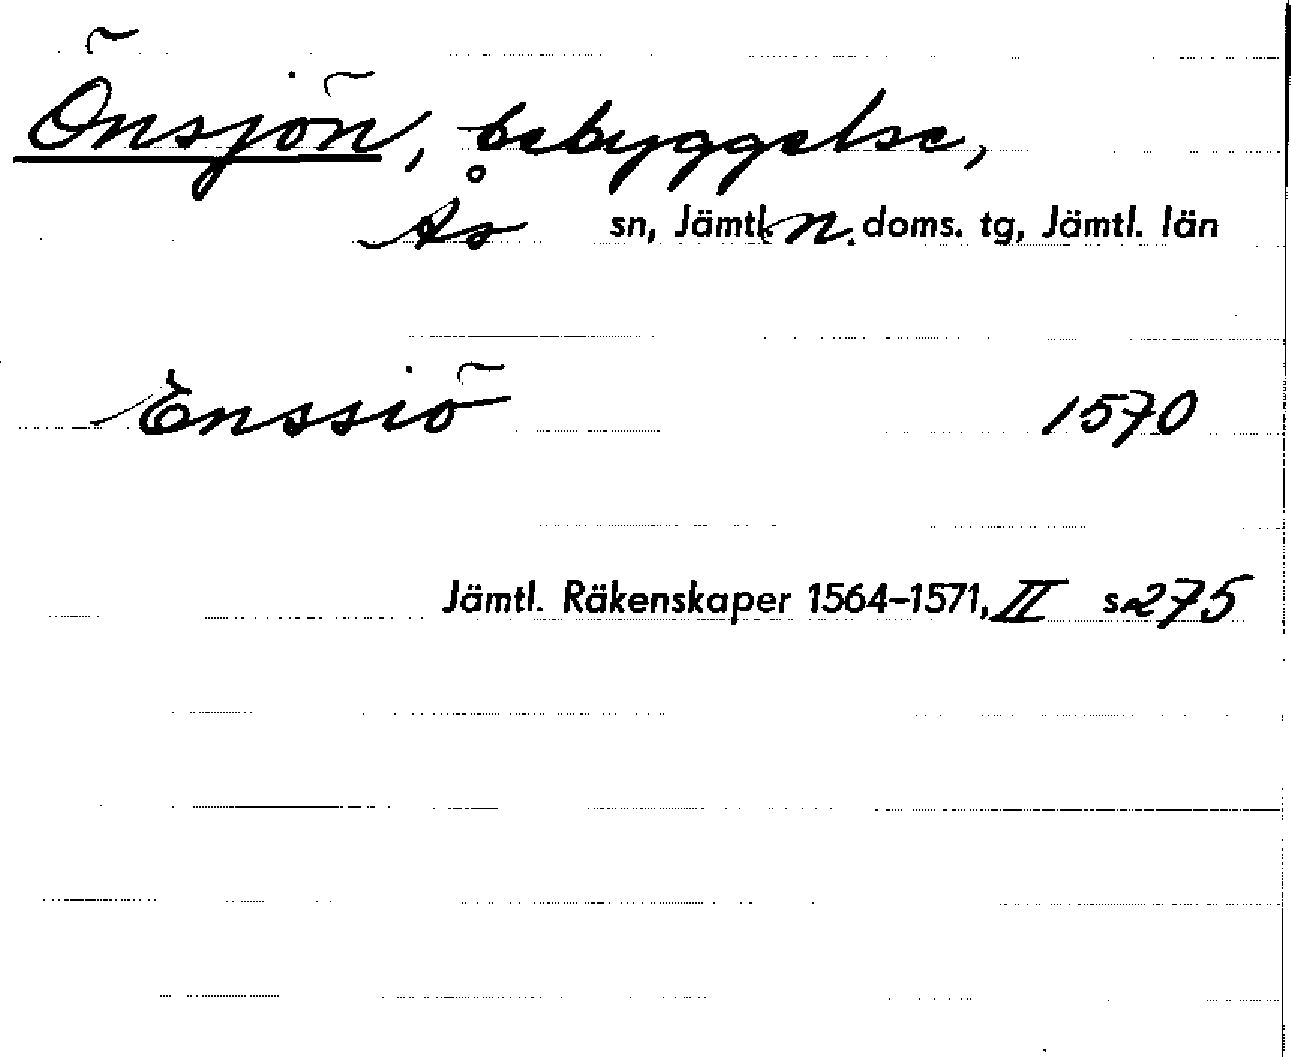 Önsjön, bebyggelse,
Ås sn, Jämtl. n. doms. tg, Jämtl. län
Enssiö 1570
Jämtl. Räkenskaper 1564–1571, II s. 275